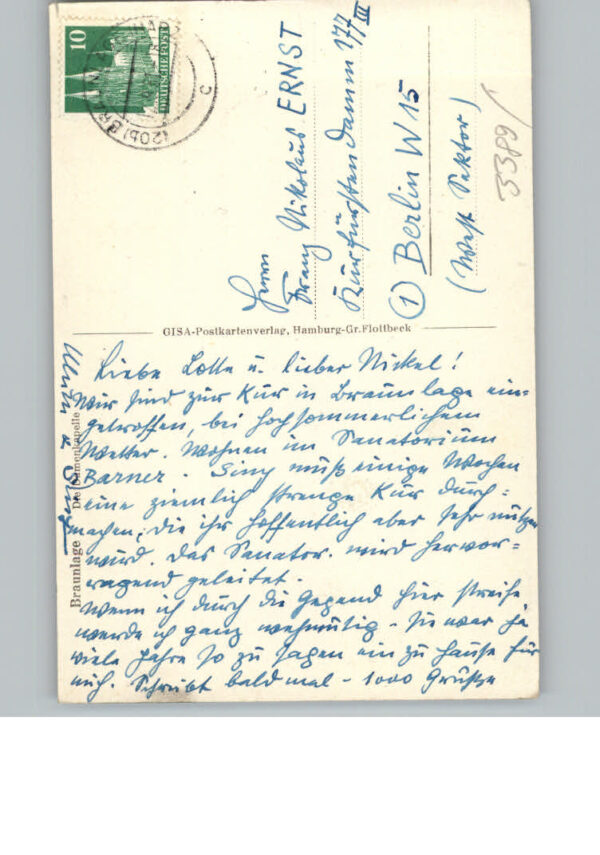 10
DEUTSCHE POST
(20b) BRAUNLAGE
c
Herrn
Franz Nikolaus ERNST
Kurfürstendamm 177
III
① Berlin W 15
(West Sektor)
3389/
GISA-Postkartenverlag, Hamburg-Gr.Flottbeck
Braunlage
Liebe Lotte u. lieber Nickel!
Wir sind zur Kur in Braunlage ein=
getroffen, bei hochsommerlichem
Wetter. Wohnen im Sanatorium
Barner. Sing muß einige Wochen
eine ziemlich strenge Kur durch=
machen, die ihr hoffentlich aber sehr nützen
wird. Das Sanator. wird hervor=
ragend geleitet.
Wenn ich durch die Gegend hier streife
werde ich ganz wehmütig - sie war ja
viele Jahre so zu sagen ein zu Hause für
mich. Schreibt bald mal - 1000 Grüße